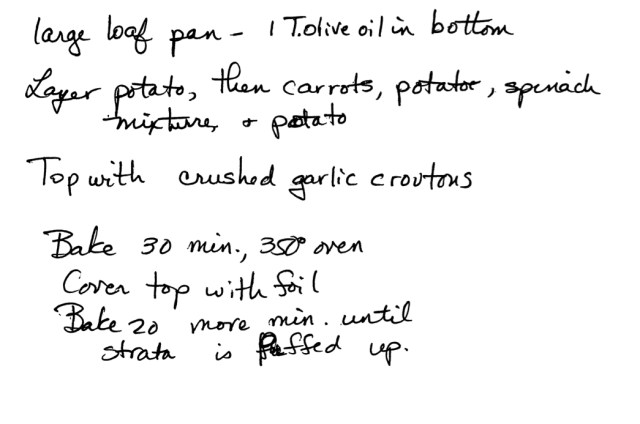 large loaf pan - 1 T. olive oil in bottom
Layer potato, then carrots, potatoe, spinach
mixture, & potato
Top with crushed garlic croutons
Bake 30 min., 350° oven
Cover top with foil
Bake 20 more min. until
strata is puffed up.